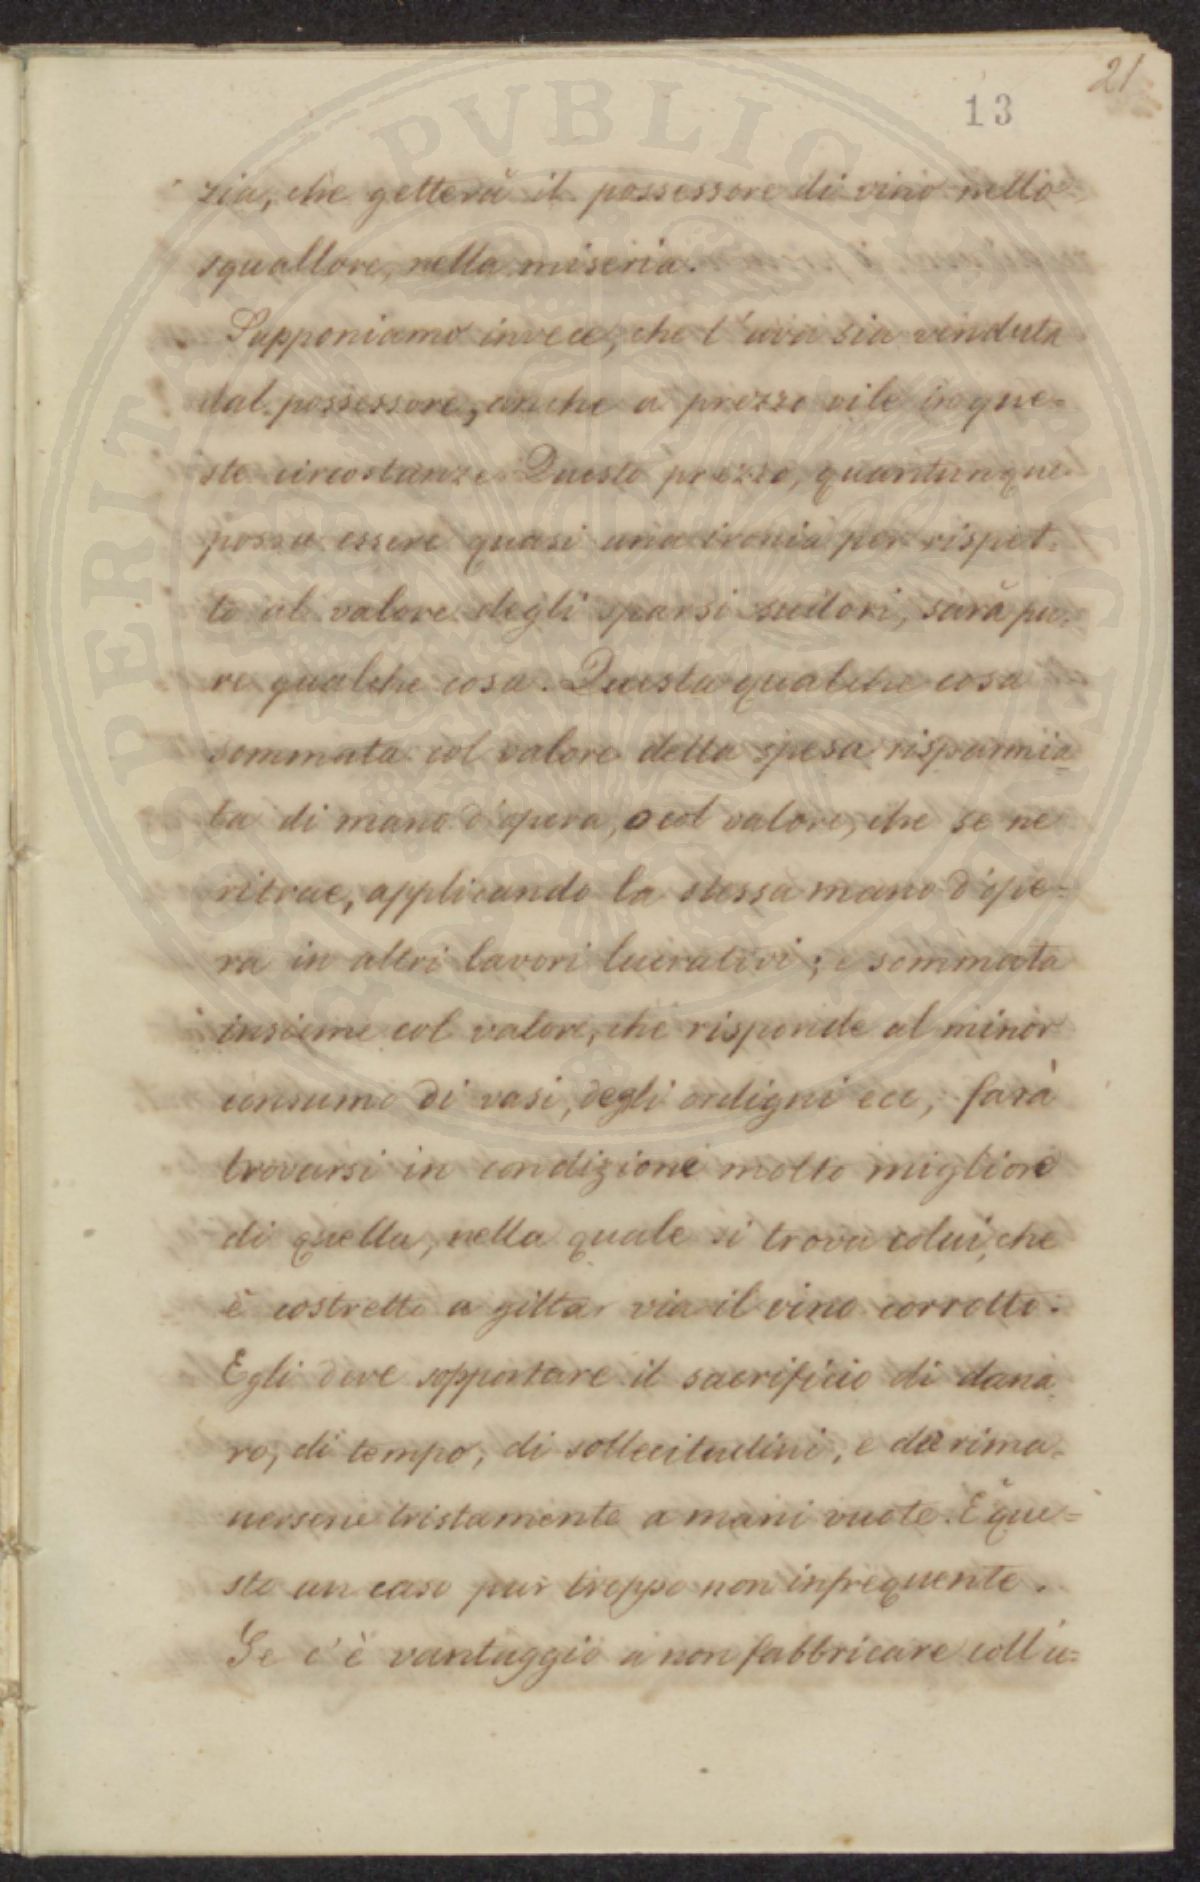 21
13
zia, che getterà il possessore di vino nello
squallore, nella miseria.
Supponiamo invece, che l'uva sia venduta
dal possessore, anche a prezzo vile in que=
ste circostanze. Questo prezzo, quantunque
possa essere quasi una ironia per rispet=
to al valore degli sparsi sudori, sarà pu=
re qualche cosa. Questa qualche cosa
sommata col valore della spesa risparmia=
ta di mano d'opera, o col valore, che se ne
ritrae, applicando la stessa mano d'ope=
ra in altri lavori lucrativi; e sommata
insieme col valore, che risponde al minor
consumo di vasi, degli ordigni ecc, farà
trovarsi in condizione molto migliore
di quella, nella quale si trova colui, che
è costretto a gittar via il vino corrotto.
Egli deve sopportare il sacrificio di dana=
ro, di tempo, di sollecitudini, e de rima=
nersene tristamente a mani vuote. È que=
sto un caso pur troppo non infrequente.
Se c'è vantaggio a non fabbricare coll'u=
PROSPERITATI PVBLICAE AVGENDAE